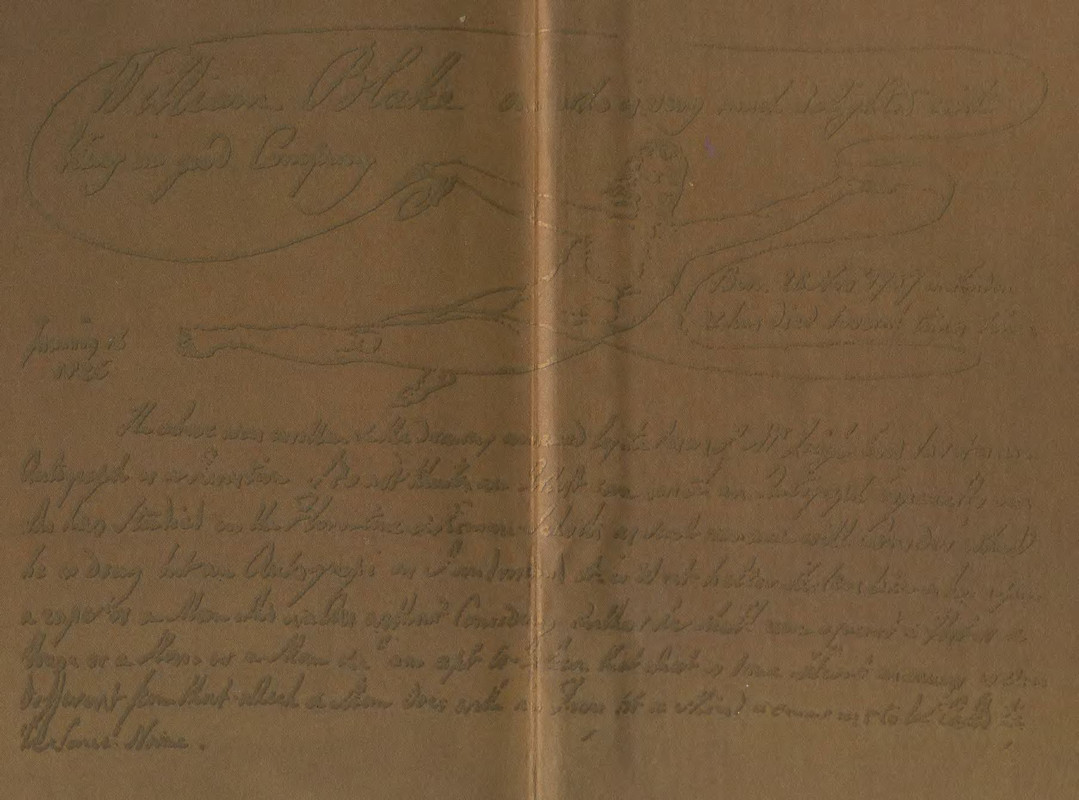 William Blake one who is very much delighted with
being in good Company
Born 28 Nov 1757 in London
& has died several times since
January 16
1826
The above was written & the drawing annexed by the desire of Mr Leigh how far it is an
Autograph is a Question I do not think an Artist can write an Autograph especially one
who has Studied in the Florentine & Roman Schools as such an one will Consider what
he is doing but an Autograph as I understand it is Writ helter skelter like a hog upon
a rope or a Man who walks without Considering whether he shall run against a
House or a Man I am apt to that that is done without meaning is very
different from that which a Man Does with his Thought & Mind & ought not to be Calld by
the Same Name .